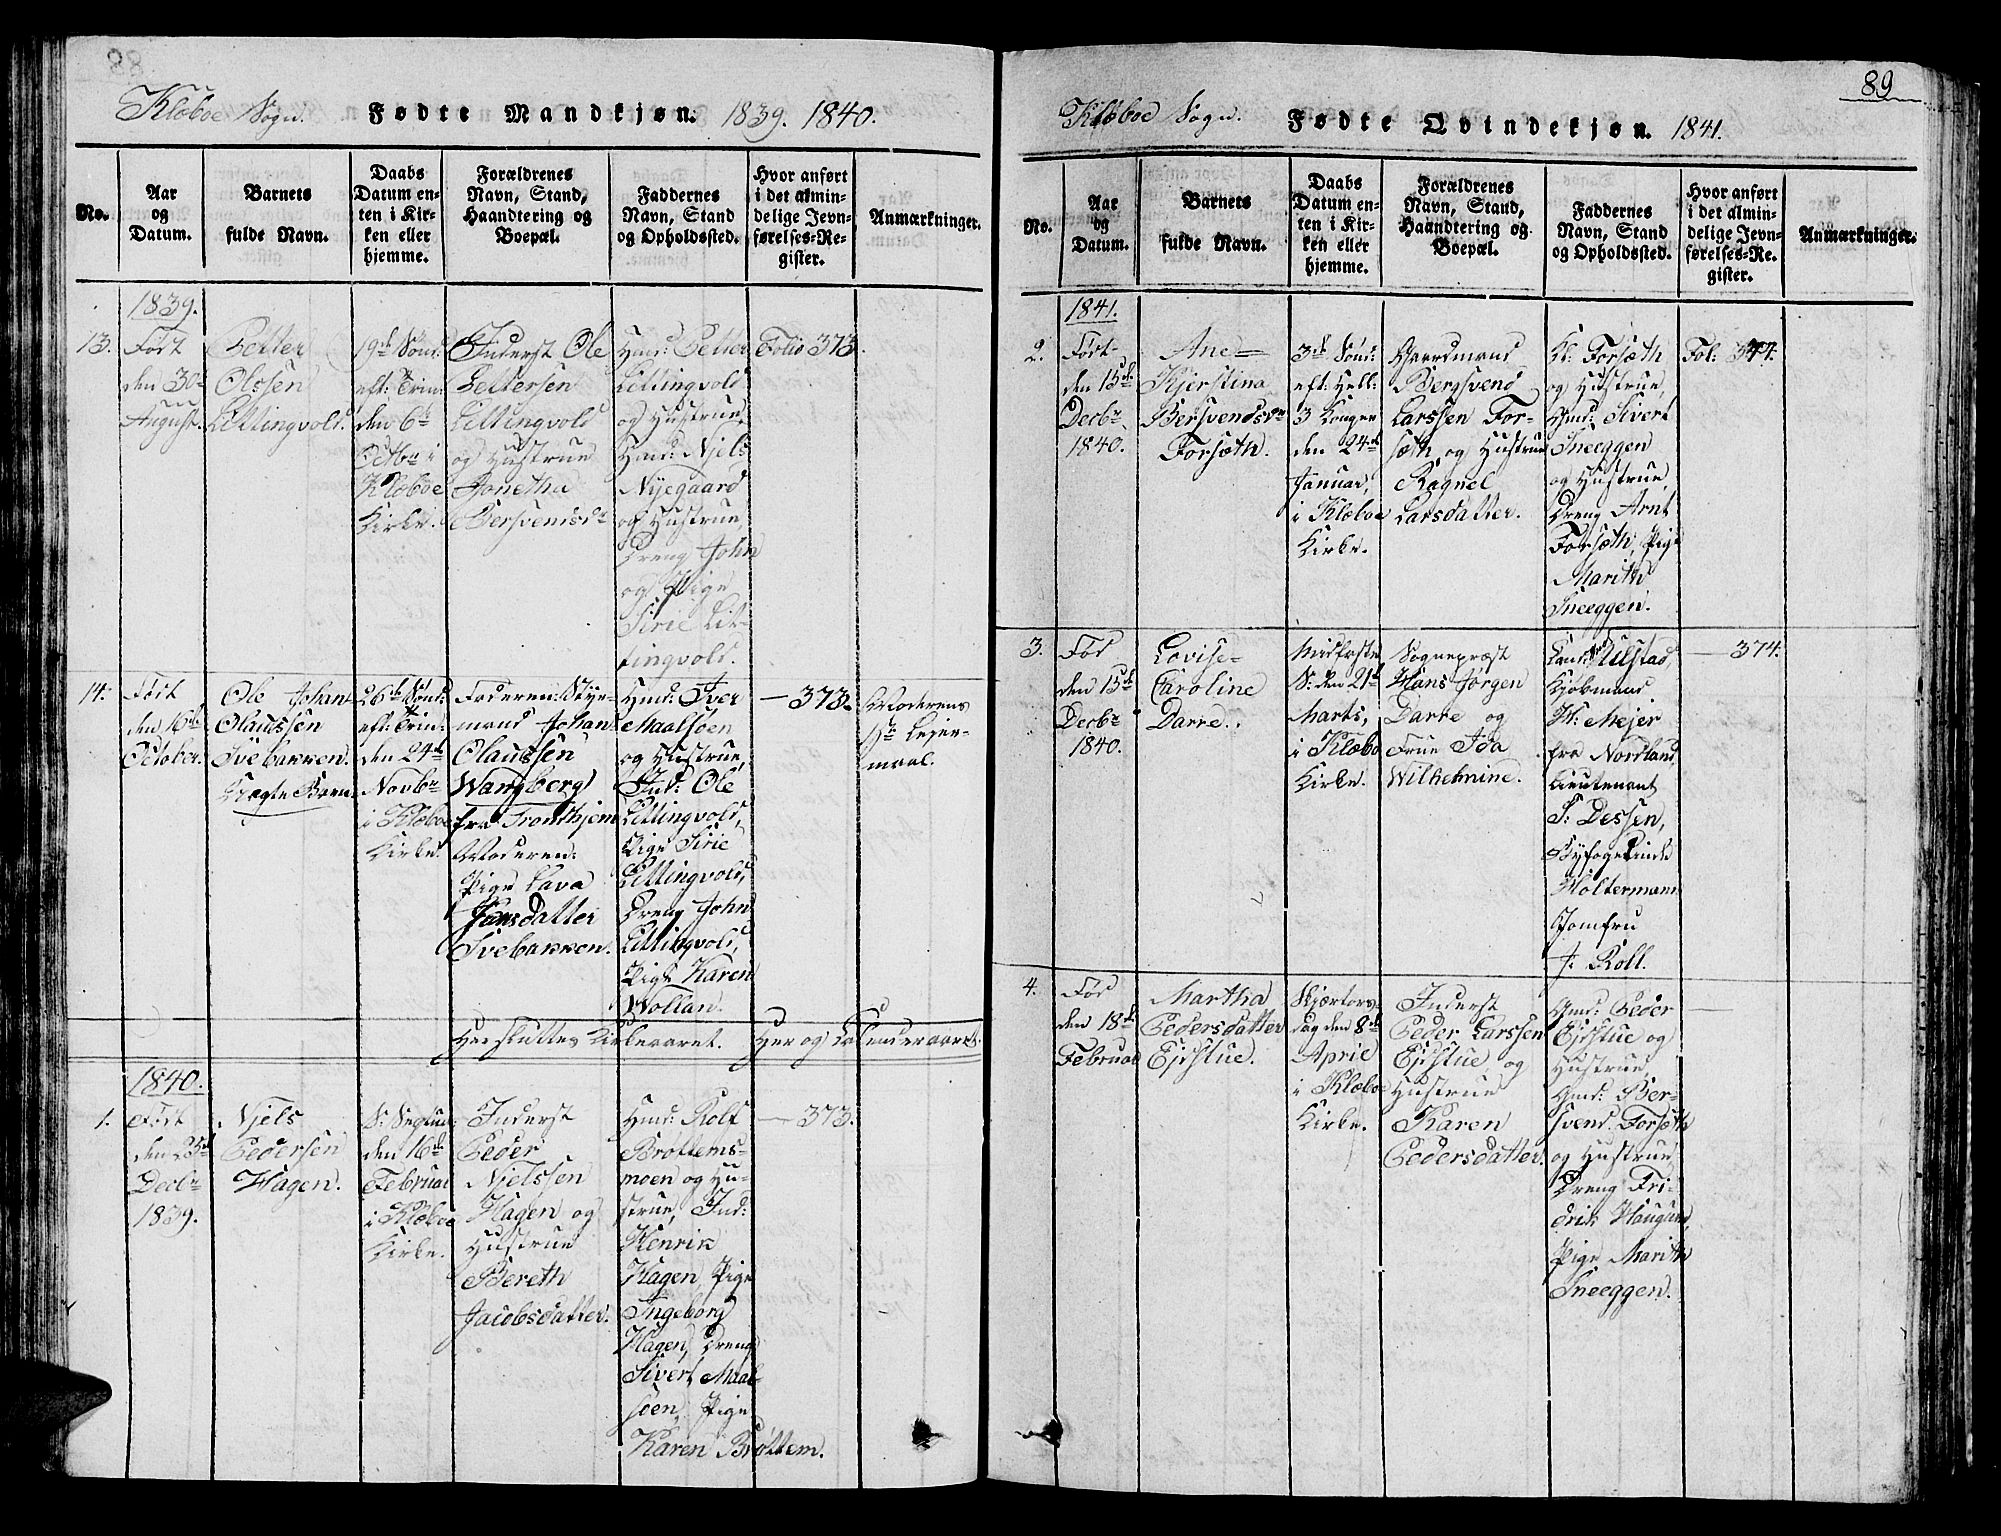 Klæboe Sogn. Fødte Mandkjøn. 1839. 1840.
No.
Aar
og
Datum.
Barnets
fulde Navn.
Daabs
Datum en-
ten i Kir-
ken eller
hjemme.
Forældrenes
Navn, Stand,
Haandtering og
Boepæl.
Faddernes
Navn, Stand
og Opholdssted.
Hvor anført
i det almin-
delige Jevn-
førelses-Re-
gister.
Anmærkninger.
1839.
13.
Født
den 30te
August.
Petter
Olssen
Littingvold.
19de Sønd:
eft: Trin:
den 6te
Octbr i
Klæboe
Kirke.
Inderst Ole
Pettersen
Littingvold
og Hustrue
Jonetha
Bersvendsdr
Hmd: Petter
Littingvold
og Hustrue,
Hmd: Njels
Nyegaard
og Hustrue,
Dreng John
og Pige
Sirie Lit-
tingvold.
Folio 373.
14.
Født
den 16de
October.
Ole Johan
Olaussen
Svebakken.
Uægte Barn.
26de Sønd:
eft: Trin:
den 24de
Novbr
i Klæboe
Kirke.
Faderen: Styr-
mand Johan
Olaussen
Wangberg
fra Trondhjem
Moderen:
Pige Lava
Jonsdatter
Svebakken.
Hmd: Iver
Maalsøen
og Hustrue,
Ind: Ole
Littingvold,
Pige Sirie
Littingvold,
Dreng John
Littingvold,
Pige Karen
Wollan.
— 373.
Moderens
1ste Leier-
maal.
Her sluttes Kirkeaaret. Her og Calenderaaret.
1840.
1.
Født
den 25de
Decbr
1839.
Njels
Pedersen
Hagen.
S: Sexag:
den 16de
Februar
i Klæboe
Kirke.
Inderst
Peder
Njelssen
Hagen og
Hustrue
Bereth
Jacobsdatter.
Hmd: Rolf
Brøttems-
moen og Hu-
strue, Ind:
Henrik
Hagen Pige
Ingeborg
Hagen, Dreng
Sivert Maal-
søen, Pige
Karen Brøttem.
— 373.
89
Klæboe Sogn. Fødte Qvindekjøn. 1841.
No.
Aar
og
Datum.
Barnets
fulde Navn.
Daabs
Datum en-
ten i Kir-
ken eller
hjemme.
Forældrenes
Navn, Stand,
Haandtering og
Boepæl.
Faddernes
Navn, Stand
og Opholdssted.
Hvor anført
i det almin-
delige Jevn-
førelses-Re-
gister.
Anmærkninger.
1841.
2.
Født
den 15de
Decbr
1840.
Ane
Kjerstina
Bersvendsdr
Forsæth.
3de Sønd:
eft: Hell:
3 Konger
den 24de
Januar,
i Klæboe
Kirke.
Gaardmand
Bergsvend
Larssen For-
sæth og Hustrue
Ragnel
Larsdatter.
Forsæth
og Hustrue,
Gmd: Sivert
Sneeggen
og Hustrue,
Dreng Arnt
Forsæth, Pige
Marith
Sneeggen.
Fol: 374.
3.
Fød
den 15de
Decbr
1840.
Lovise
Caroline
Darre.
Midfaste
S: den 21de
Marts,
i Klæboe
Kirke.
Sognepræst
Hans Jørgen
Darre og
Frue Ida
Wilhelmine.
Ulstad,
Kjøbmand
Mejer
fra Nordland,
Lieutenant
S: Dessen,
Holtermann
Jomfru
J: Roll.
— 374.
4.
Fød
den 18de
Februar
Martha
Pedersdatter
Ejdstue.
Skjærtors-
dag den 8de
April
i Klæboe
Kirke.
Inderst
Peder Larssen
Ejdstue, og
Hustrue
Karen
Pedersdatter.
Gmd: Peder
Ejdstue og
Hustrue,
Gmd: Ber-
svend Forsæth
og Hustrue,
Dreng Fri-
drik Haugum,
Pige Marith
Sneeggen.
—